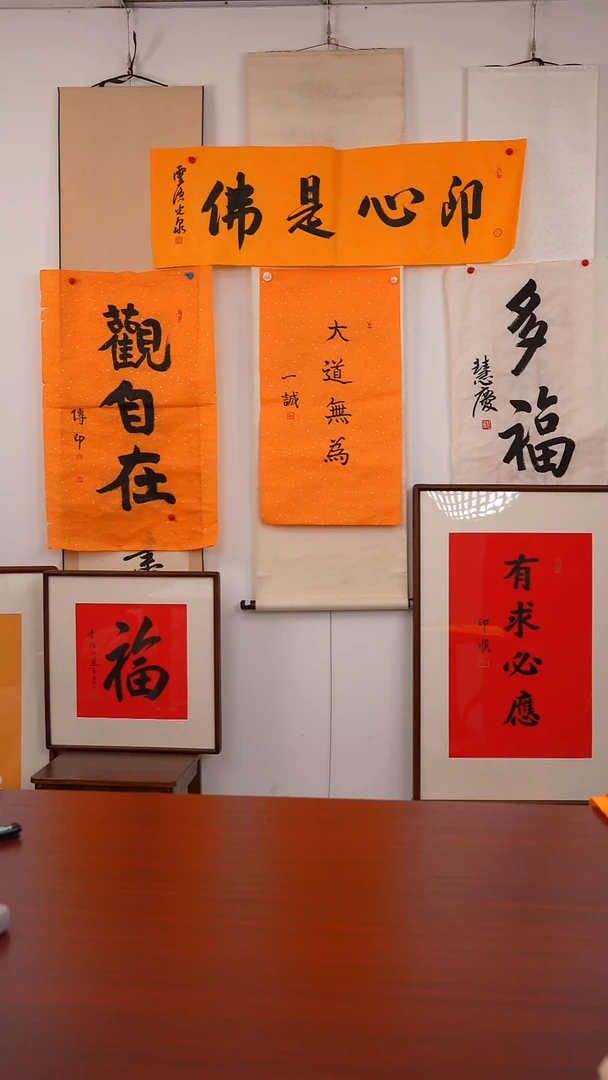 即心是佛
靈隱光泉
觀自在
傳印
大道無為
一誠
多福
慧慶
福
有求必應
印順